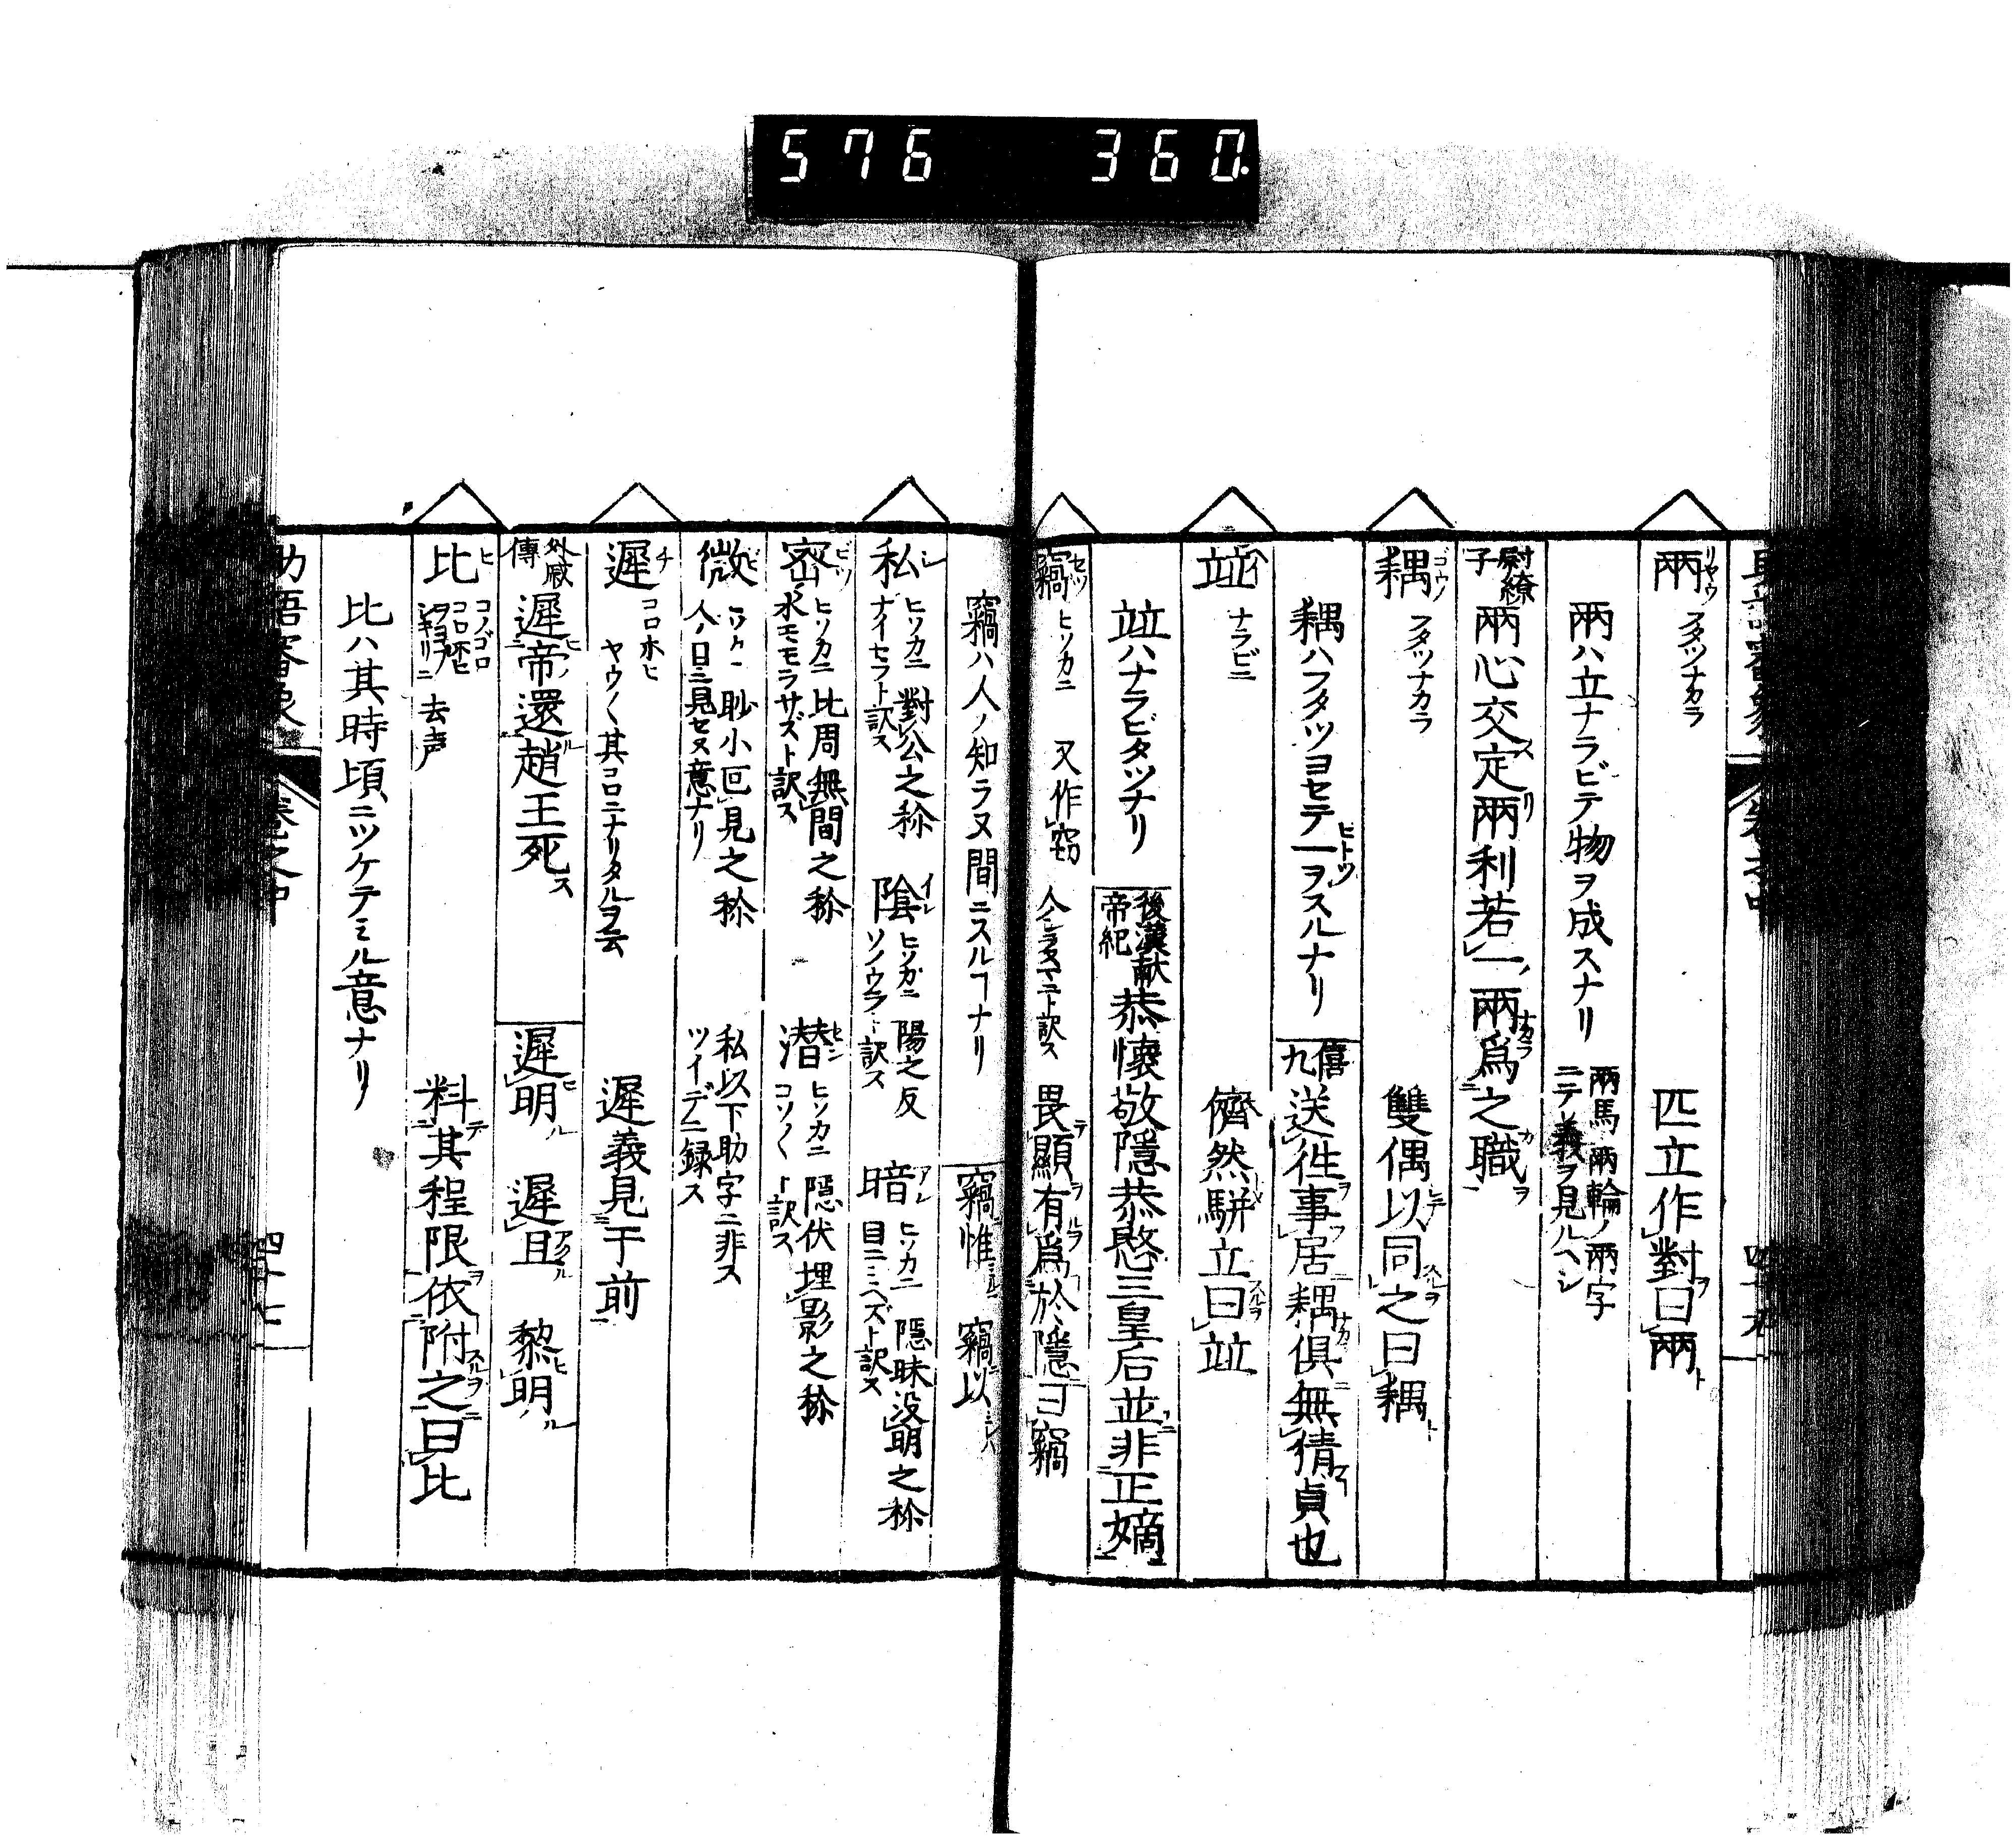 576 360
兩 リヤウ フタツナカラ 匹立作對曰兩
兩ハ立ナラビテ物ヲ成スナリ 兩馬兩輪ノ兩字ニテ義ヲ見ルヘシ
尉繚子 兩心交定兩利若一兩爲之職
耦 ゴウ フタツナカラ 雙偶以同之曰耦
耦ハフタツヨセテ一ヲスルナリ 僖九 送往事居耦俱無猜貞也
竝 ナラビニ 儕然駢立曰竝
竝ハナラビタツナリ 後漢献帝紀 恭懐敬隱恭愍三皇后並非正嫡
竊 セツ ヒソカニ 又作窃 畏顯有爲於隱曰竊
竊ハ人ノ知ラヌ間ニスルヿナリ 竊惟 竊以
私 シ ヒソカニ ナイセフト訳ス 對公之称 陰 イン ヒソカニ 陽之反 暗 アン ヒソカニ 目ニミヘズト訳ス 隱昧没明之称
密 ミツ ヒソカニ 水モモラサズト訳ス 比周無間之称 潜 セン ヒソカニ コソ〱ト訳ス 隱伏埋影之称
微 ビ 人ノ目ニ見セヌ意ナリ 眇小回見之称 私以下助字ニ非ス ツイデニ録ス
遲 チ コロホヒ ヤウ〱其コロニナリタルヲ云 遲義見于前
外戚傳 遲帝還趙王死 遲明 遲旦 黎明
比 ヒ コノゴロ コロホヒ 去声 料其程限依附之曰比
比ハ其時頃ニツケテミル意ナリ